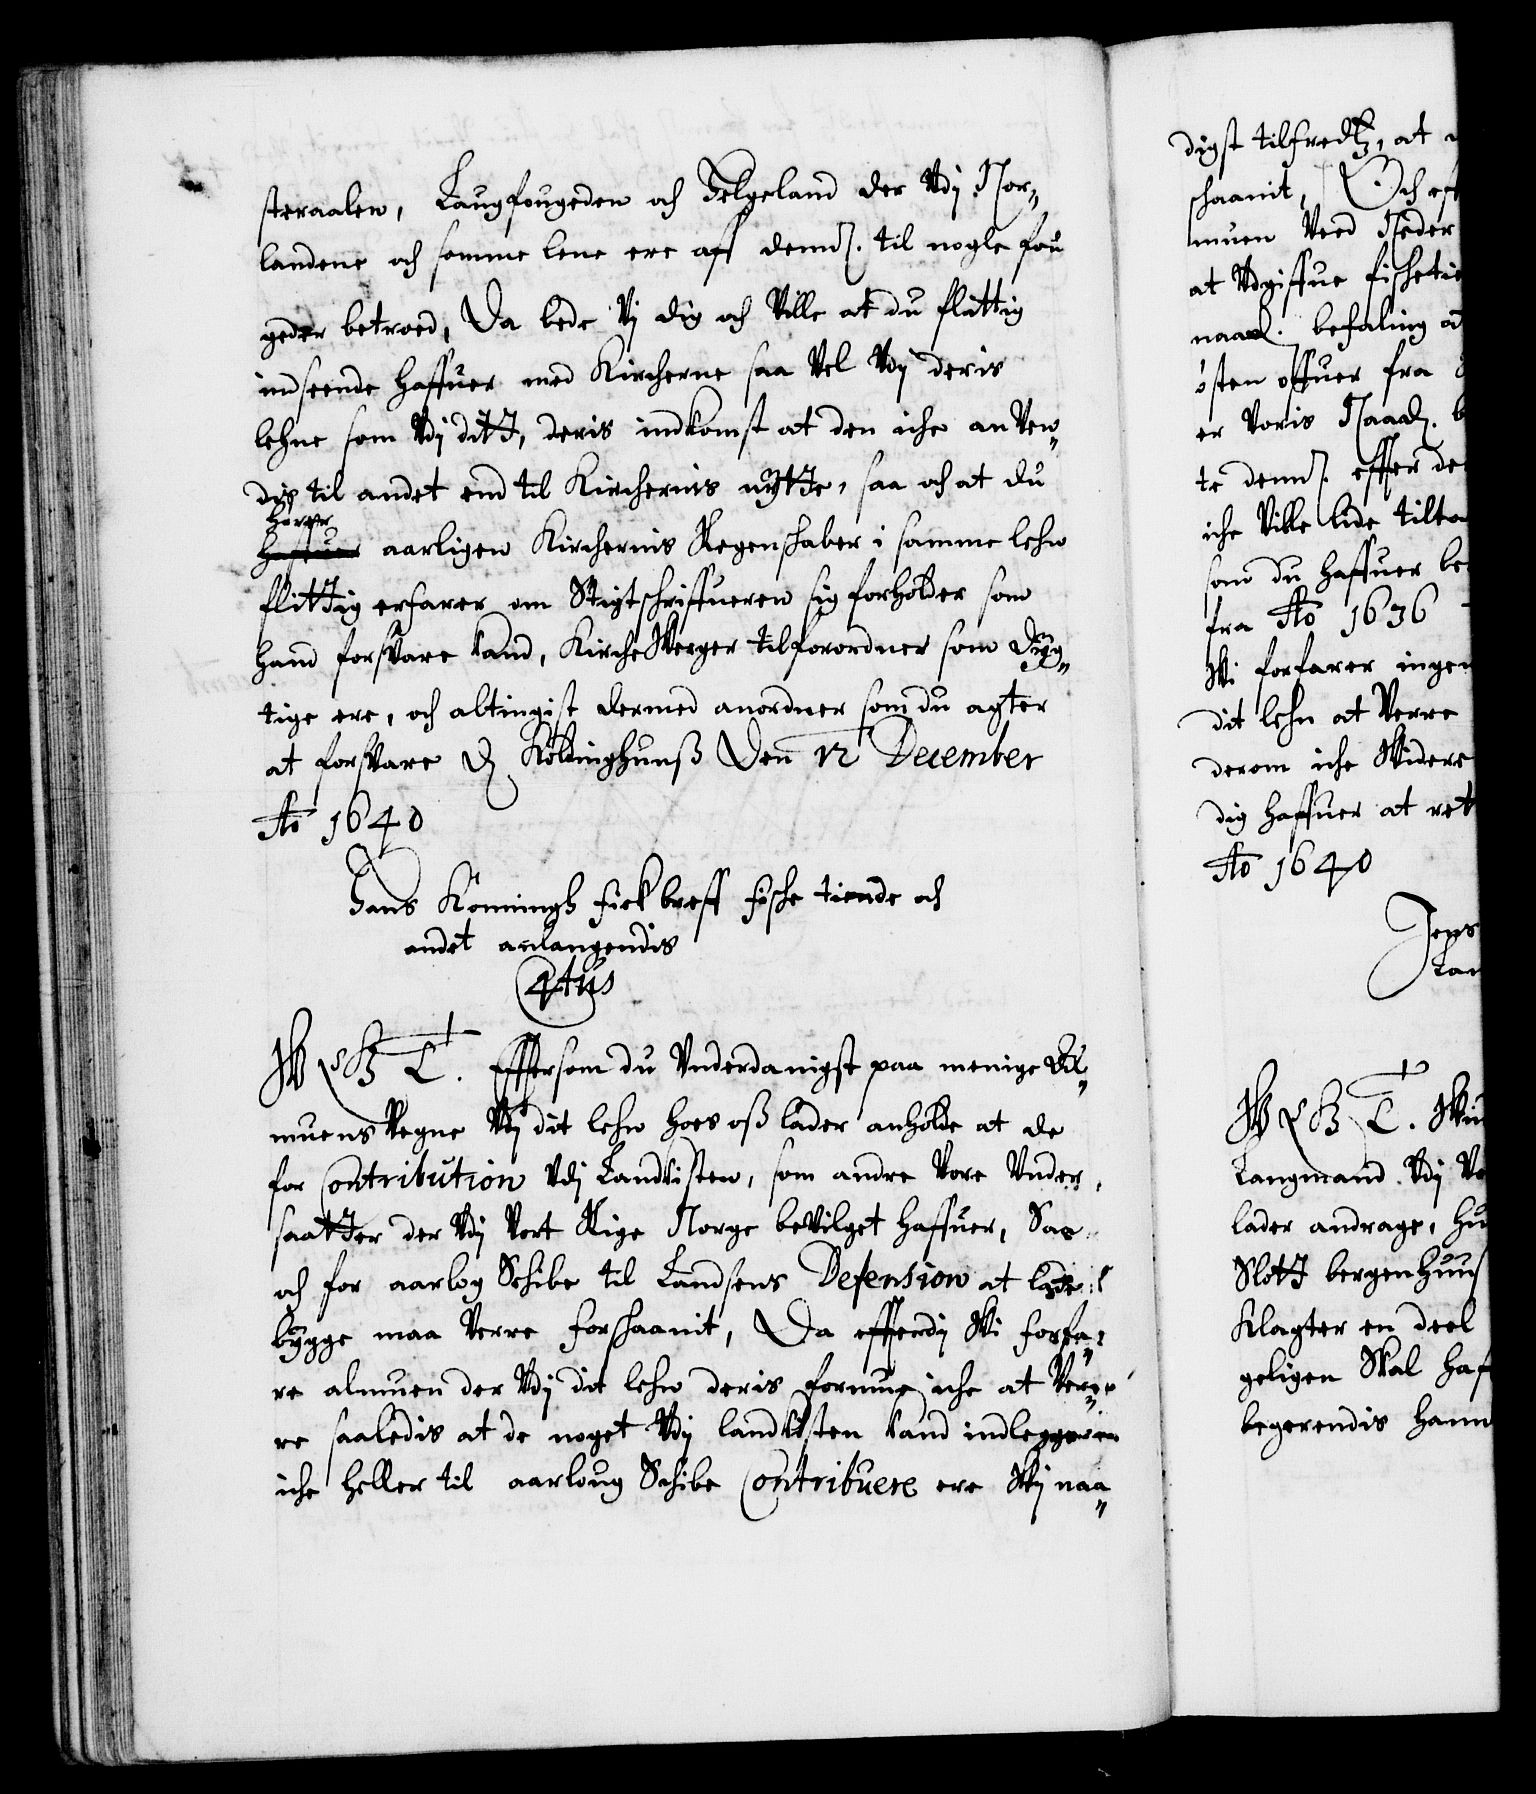 steraalen, Laugfougeden och Helgeland der Vdj Nor„
landene och somme lene ere aff dennd. til nogle fou
geder betroed, Da bede Vj dig och Ville at du flittig
indseende haffuer med Kircherne saa Vel Vdj deris
lehne som Vdj ditt, deris indkomst at den iche anVen„
dis til andet end til Kirchernis nytte, saa och at du
hører
haffuer aarligen Kirchernis Regenschaber i samme lehn
flittig erfarer om Stigtschriffueren sig forholder som
hand forsVare kand, KircheVerger tilforordner som dyg„
tige ere, och altingist dermed anordner som du agter
at forsVare Koldinghuuß Den 12 December
Ao 1640
Hans Konningh fick breff fische tiende och
andet anlangendis
4tus
C 4 G T. Effter som du Vnderdanigst paa menige Al„
muens Vegne Vdj dit lehn hoes oß lader anholde at de
for Contribution Vdj Landkisten, som andre Vore Vnder„
saatter der Vdj Vort Rige Norge beVilget haffuer, Saa
och for aarlog Schibe til Landsens Defension at lade
bygge maa Verre forschaanit, Da efftterdj Wi forfa„
re almuen der Vdj dit lehn deris formue iche at Ver„
re saaledis at de noget Vdj landkisten kand indlegge
iche heller til aarloug Schibe Contribuere ere Wj naa„
digst tilfredtz, at
schaanit, Och eff
muen Ved Neder
at Vdgiffue fischetie
naad. befaling at
østen offuer fra
er Voris Naad. b
te dennd. effter de
iche Ville lide tilta
som du haffuer be
fra Ao 1636
Wi forfarer ingen
dit lehn at Verre
derom iche Widere
dig haffuer at ret
Ao 1640
Jens
Lan
Langmand Vdj Vo
lader andrage, hu
Slott bergenhuus
Klagter en deel
geligen Skal haf
begerendis hann